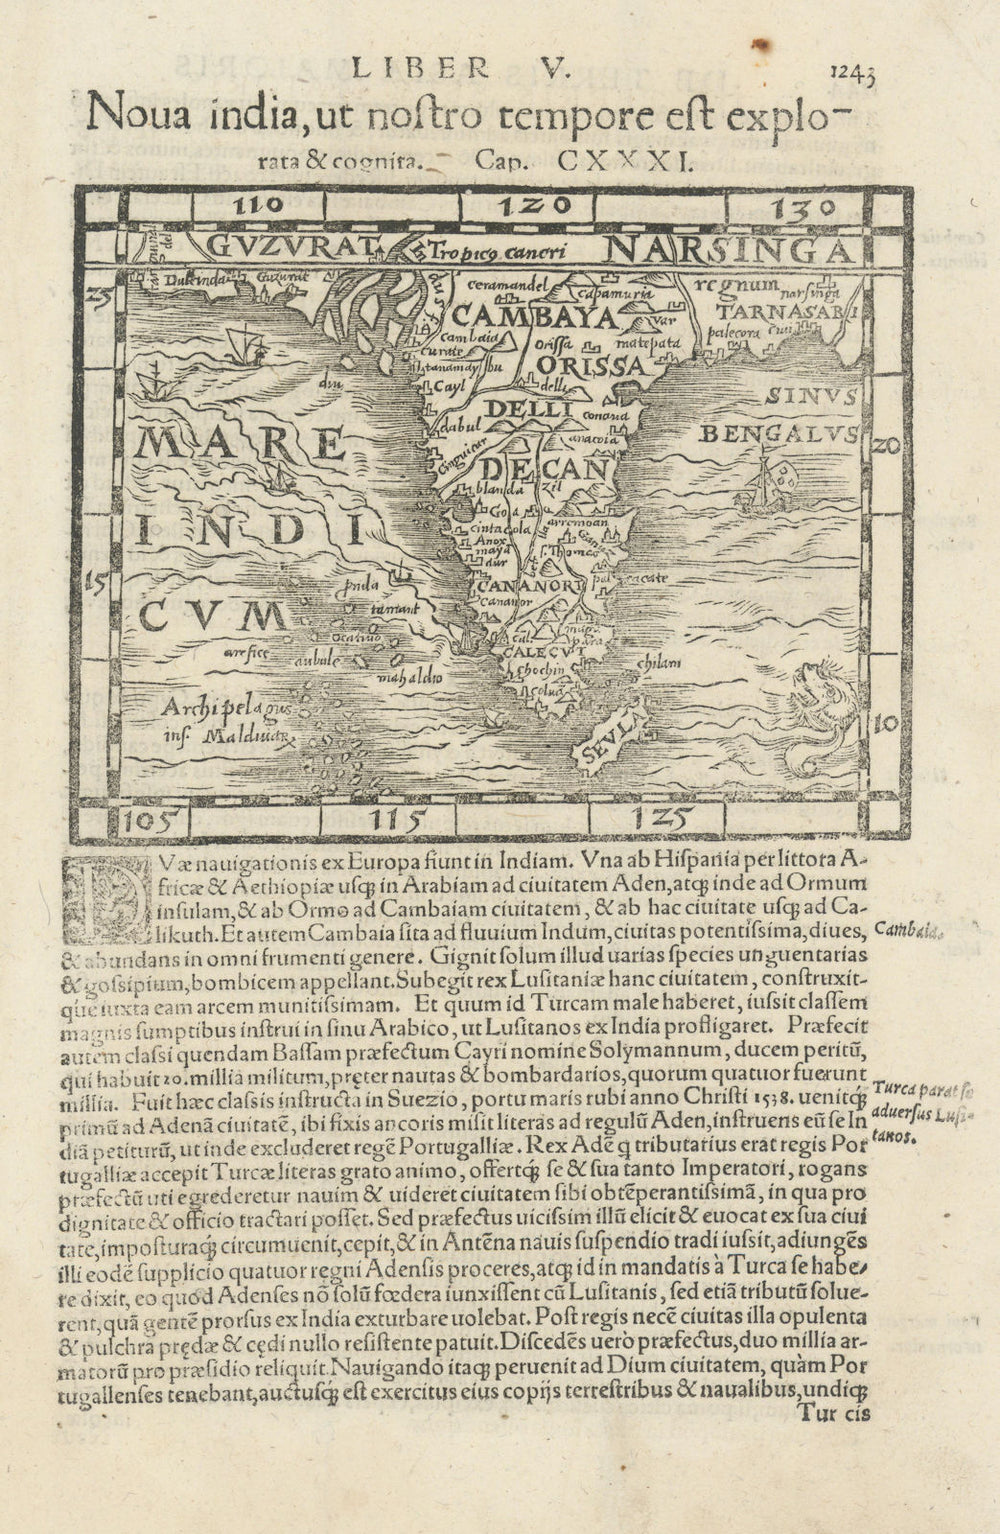 LIBER V.
1243
Noua india, ut nostro tempore est explo-
rata & cognita. Cap. CXXXI.
110 120 130
GVZVRAT Tropicꝰ cancri NARSINGA
Dulcinda Guzurat
25
ceramandel capamuria regnum narsinga
CAMBAYA var TARNASARI
cambaia orissa matepata palecora
curate
ORISSA
diu Cayl delli
SINVS
DELLI conoria
MARE dabul BENGALVS
anacoia 20
cinguicar
DECAN
blanda zil
Goa
INDI cintacola arremoan
Anox
maya S. Thomas
dur
15
CANANORI cacate
Cananor
tamant
CVM cal.
CALECVT
arefice aubule chochin chilam
mahaldio
colum
Archipelagus
ins. Maldiuar
SEVLA
10
105 115 125
DVæ nauigationis ex Europa fiunt in Indiam. Vna ab Hispania per littora A-
fricæ & Aethiopiæ usqꝫ in Arabiam ad ciuitatem Aden, atqꝫ inde ad Ormum
insulam, & ab Ormo ad Cambaiam ciuitatem, & ab hac ciuitate usqꝫ ad Ca-
likuth. Et autem Cambaia sita ad fluuium Indum, ciuitas potentissima, diues,
Cambaia.
& abundans in omni frumenti genere. Gignit solum illud uarias species unguentarias
& gossipium, bombicem appellant. Subegit rex Lusitaniæ hanc ciuitatem, construxit-
que iuxta eam arcem munitissimam. Et quum id Turcam male haberet, iussit classem
magnis sumptibus instrui in sinu Arabico, ut Lusitanos ex India profligaret. Præfecit
autem classi quendam Bassam præfectum Cayri nomine Solymannum, ducem peritū,
qui habuit 20. millia militum, pręter nautas & bombardarios, quorum quatuor fuerunt
millia. Fuit hæc classis instructa in Suezio, portu maris rubi anno Christi 1538. uenitqꝫ
Turca parat se
primū ad Adenā ciuitatē, ibi fixis ancoris misit literas ad regulū Aden, instruens eū se In
aduersus Lusi-
diā petiturū, ut inde excluderet regē Portugalliæ. Rex Adē q tributarius erat regis Por
tanos.
tugalliæ accepit Turcæ literas grato animo, offertqꝫ se & sua tanto Imperatori, rogans
præfectū uti egrederetur nauim & uideret ciuitatem sibi obtēperantissimā, in qua pro
dignitate & officio tractari posset. Sed præfectus uicissim illū elicit & euocat ex sua ciui
tate, imposturaqꝫ circumuenit, cepit, & in Antēna nauis suspendio tradi iussit, adiungēs
illi eodē supplicio quatuor regni Adensis proceres, atqꝫ id in mandatis à Turca se habe-
re dixit, eo quod Adenses nō solū fœdera iunxissent cū Lusitanis, sed etiā tributū solue-
rent, quā gentē prorsus ex India exturbare uolebat. Post regis necē ciuitas illa opulenta
& pulchra prędæ & cędi nullo resistente patuit. Discedēs uerò præfectus, duo millia ar-
matorū pro præsidio reliquit. Nauigando itaqꝫ peruenit ad Dium ciuitatem, quàm Por
tugallenses tenebant, auctusqꝫ est exercitus eius copijs terrestribus & naualibus, undiqꝫ
Tur cis